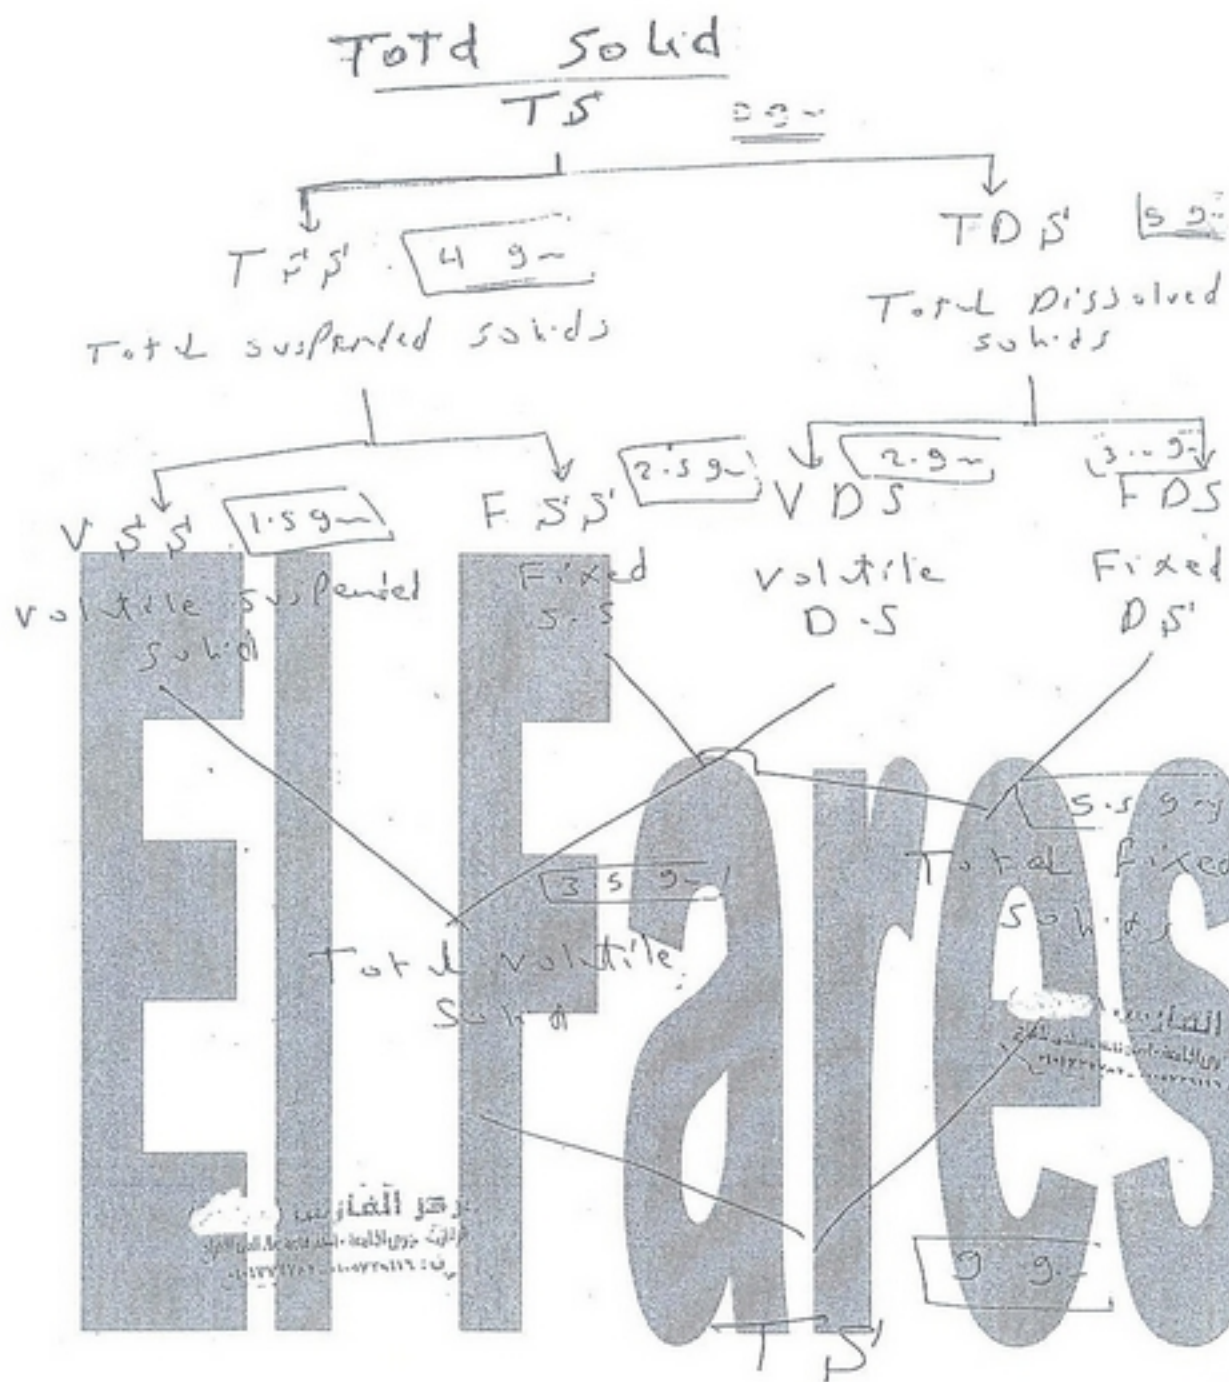 Totd Solid
TS 9 gm
TSS 4 gm
TDS 5 g
Total suspended solids
Total Dissolved
solids
VSS 1.5 gm
FSS 2.5 gm
VDS 2. gm
FDS 3.. g
Volutile suspended
solid
Fixed
S.S
Volutile
D.S
Fixed
DS
3.5 gm
5.5 gm
Total volutile
Solid
Total fixed
Solids
مركز الفارس
9 gm
TS
El Fares